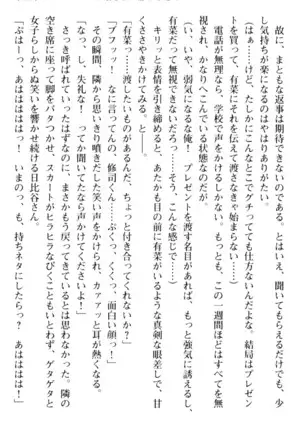 故に、まともな返事は期待できないのである。とはいえ、聞いてもらえるだけでも、少
し気持ちが楽になるのはやはりありがたい。
「はぁ……けど、たしかにこんなとこでグチってても仕方ないんだよな。結局はプレゼン
トを買って、有菜にそれを伝えて渡さなきゃ始まらない……」
電話が無理なら、学校で声をかけるしかない。もっとも、この一週間ほどはすべてを無
視され、かなりへこんでいる状態なのだが。
（いや、弱気になるな俺！　プレゼントを渡す名目があれば、もっと強気に誘えるし、
有菜だって無視できないだろ……そう、こんな感じで……）
キリッと表情を引き締めると、あたかも目の前に有菜がいるような真剣な眼差しで、甘
くささやきかけてみる。と――。
「有菜……渡したいものがあるんだ、ちょっと付き合ってくれないか？」
「プフッッ！　なに言ってんの、修司くん……ぷくっ、くくっ、面白い顔っ！」
その瞬間、隣から思いきり噴きだした笑い声をかけられ、カァァッと耳が熱くなる。
「なっ、し、失礼な！　ってか聞いてたなら声かけてくださいよ！」
さっき呼ばれていったはずなのに、まさかもう戻ってきているとは思わなかった。隣の
空き席に座って脚をバタつかせ、スカートがヒラヒラなびくこともいとわず、ゲタゲタと
女子らしからぬ笑いを響かせ続ける日比谷さん。
「ぷはーっ、あはははははは！　いまのっ、も、持ちネタにしたらっ？　あはははは！」